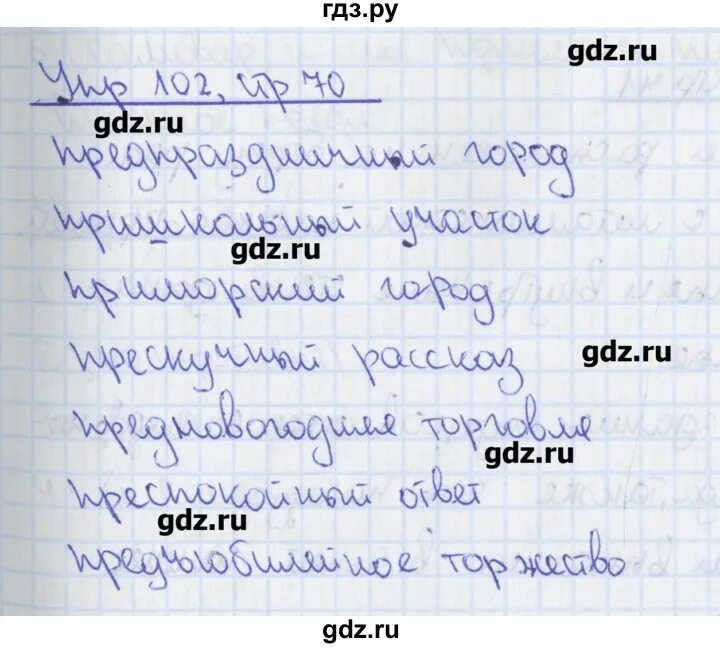 гдз.ру
gdz.ru
Упр 102, стр 70
gdz.ru
предпраздничный город
пришкольный участок
gdz.ru
приморский город
прескучный рассказ
gdz.ru
предновогодняя торговля
gdz.ru
преспокойный ответ
gdz.ru
предъюбилейное торжество
gdz.ru